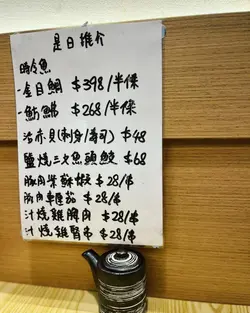 是日推介
時令魚
-金目鯛 $398/半條
-魴鮄 $268/半條
活赤貝(刺身/壽司) $48
鹽燒三文魚頭鮫 $68
豚肉紫蘇 $28/串
豚肉車厘茄 $28/串
汁燒雞胸肉 $28/串
汁燒雞腎串 $28/串